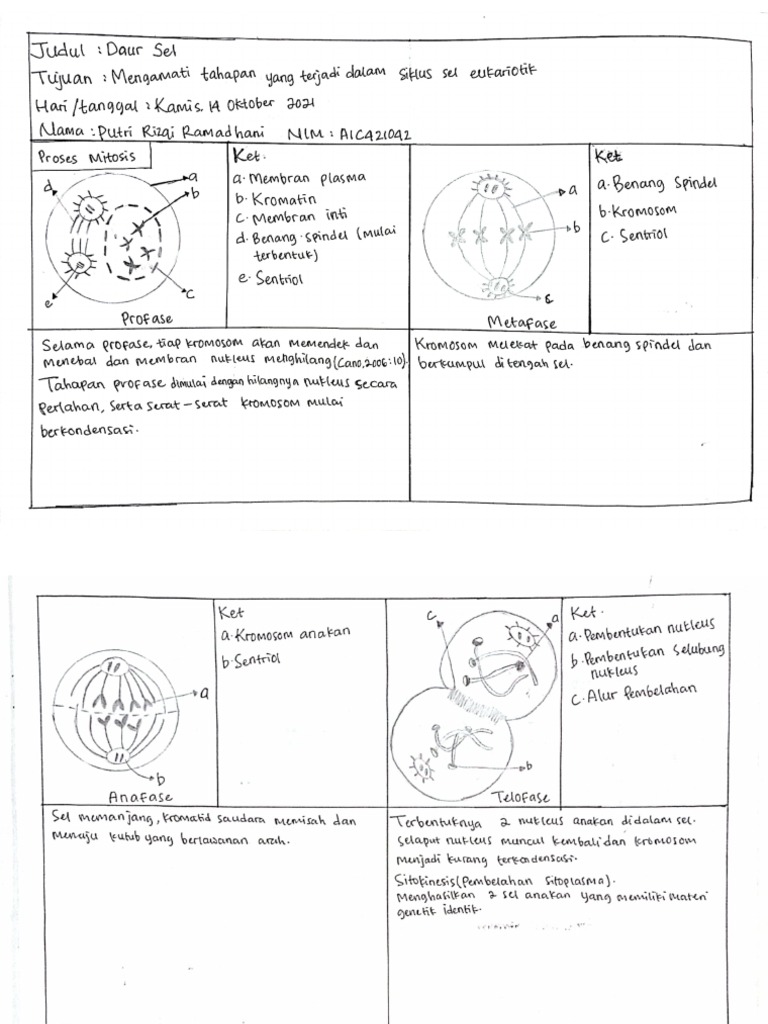 Judul : Daur Sel
Tujuan : Mengamati tahapan yang terjadi dalam siklus sel eukariotik
Hari/tanggal : Kamis, 14 Oktober 2021
Nama : Putri Rizqi Ramadhani NIM : A1C421042
Proses Mitosis
d
a
b
c
e
Profase
Ket.
a. Membran plasma
b. Kromatin
c. Membran inti
d. Benang spindel (mulai
terbentuk)
e. Sentriol
a
b
c
Metafase
Ket
a. Benang Spindel
b. Kromosom
c. Sentriol
Selama profase, tiap kromosom akan memendek dan
menebal dan membran nukleus menghilang (Cano, 2006:10).
Tahapan profase dimulai dengan hilangnya nukleus secara
perlahan, serta serat-serat kromosom mulai
berkondensasi.
Kromosom melekat pada benang spindel dan
berkumpul di tengah sel.
a
b
Anafase
Ket
a. Kromosom anakan
b. Sentriol
c
a
b
Telofase
Ket.
a. Pembentukan nukleus
b. Pembentukan selubung
nukleus
c. Alur Pembelahan
Sel memanjang, kromatid saudara memisah dan
menuju kutub yang berlawanan arah.
Terbentuknya 2 nukleus anakan didalam sel.
selaput nukleus muncul kembali dan kromosom
menjadi kurang terkondensasi.
Sitokinesis (Pembelahan sitoplasma).
Menghasilkan 2 sel anakan yang memiliki materi
genetik identik.